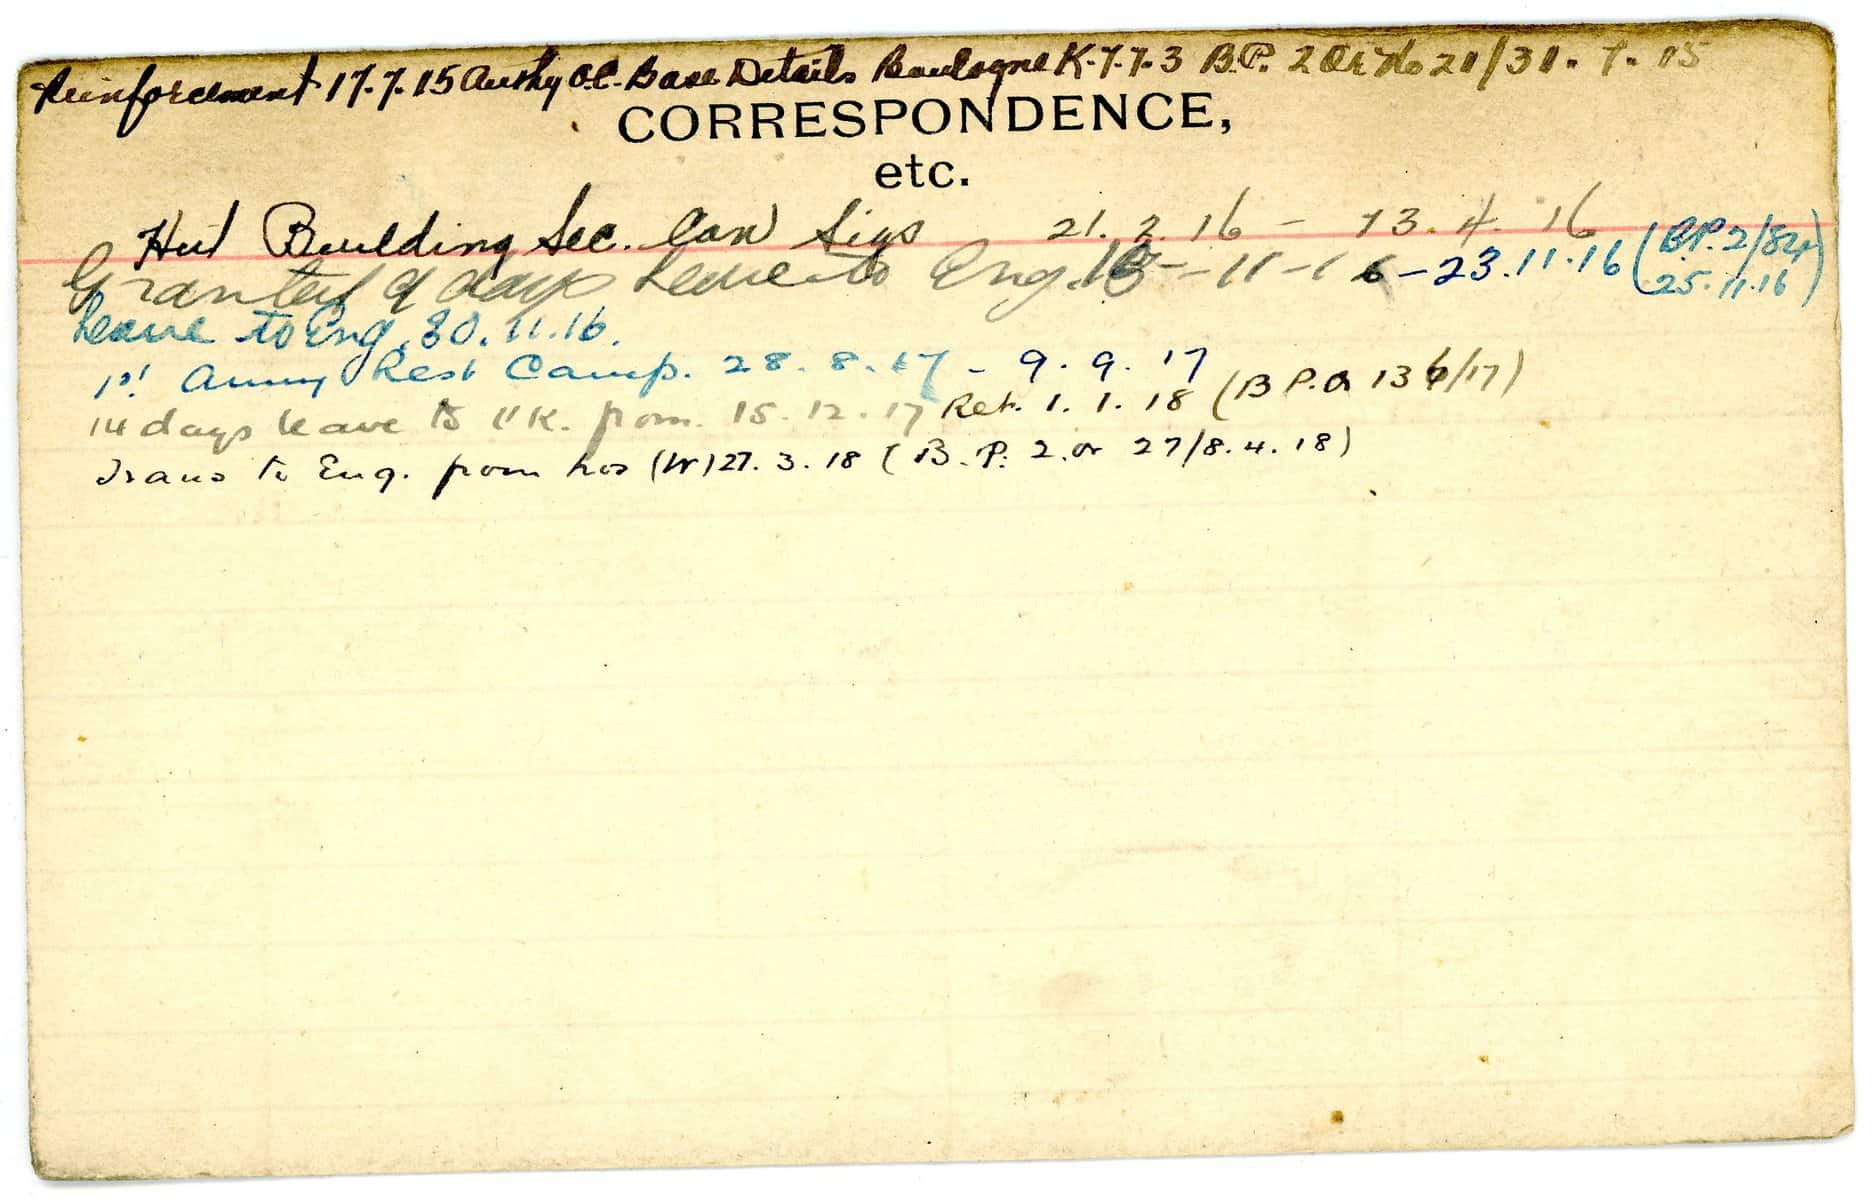 Reinforcement 17.7.15 Authy O.C. Base Details Boulogne K.7.7.3 B.P. 2 Or No 21/31.7.15
CORRESPONDENCE,
etc.
Hut Building Sec. Can Sigs 21.2.16 - 13.4.16
Granted 9 days leave to Eng. -11-16-23.11.16 (B.P.2/84
25.11.16)
Leave to Eng. 30.11.16.
1st Army Rest Camp. 28.8.17 - 9.9.17
14 days leave to UK. from. 15.12.17 Ret. 1.1.18 (B P.2 136/17)
Trans to Eng. from hos (W) 27.3.18 (B.P. 2.or 27/8.4.18)